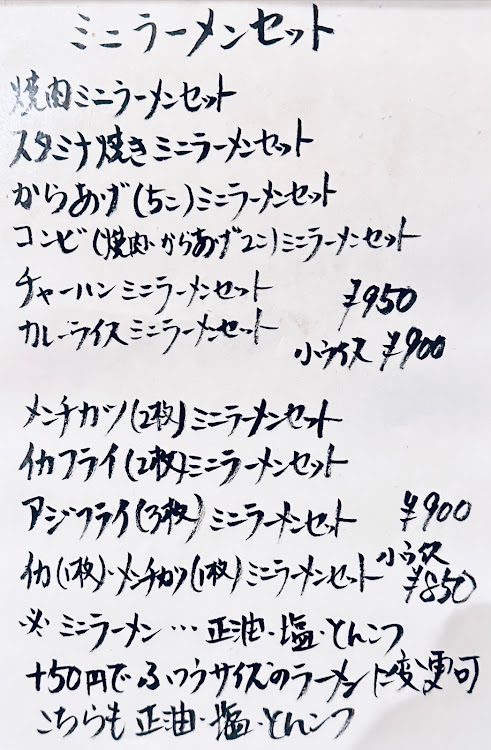 ミニラーメンセット
焼肉ミニラーメンセット
スタミナ焼きミニラーメンセット
からあげ(5こ)ミニラーメンセット
コンビ(焼肉・からあげ2コ)ミニラーメンセット
チャーハンミニラーメンセット ¥950
カレーライスミニラーメンセット
小ライス ¥900
メンチカツ(2枚)ミニラーメンセット
イカフライ(2枚)ミニラーメンセット
アジフライ(3枚)ミニラーメンセット ¥900
イカ(1枚)・メンチカツ(1枚)ミニラーメンセット 小ライス ¥850
※ミニラーメン…正油・塩・とんこつ
+50円でふつうサイズのラーメンに変更可
こちらも正油・塩・とんこつ